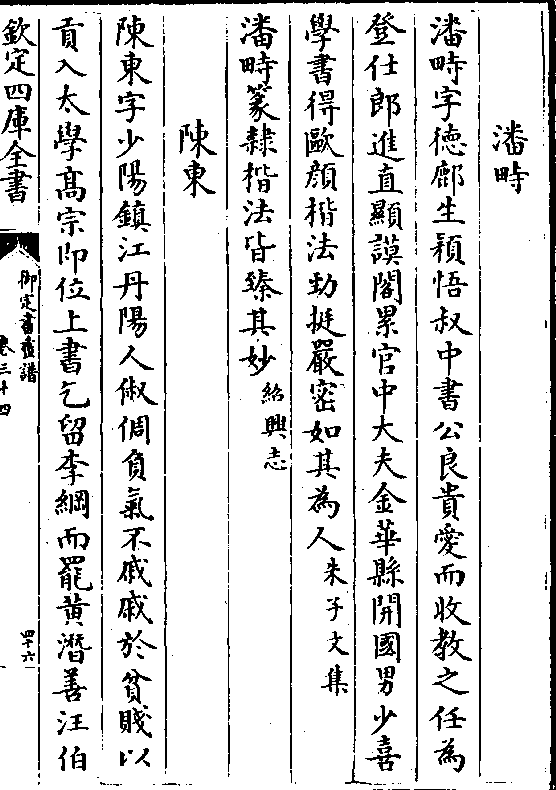 潘畤
潘畤字德鄜生穎悟叔中書公良貴愛而收教之任為
登仕郎進直顯謨閣累官中大夫金華縣開國男少喜
學書得歐顏楷法勁挺嚴密如其為人朱子文集
潘畤篆隸楷法皆臻其妙紹興志
陳東
陳東字少陽鎮江丹陽人俶倜負氣不戚戚於貧賤以
貢入太學髙宗即位上書乞留李綱而罷黄潛善汪伯
欽定四庫全書
御定書畫譜
卷三十四
四十六